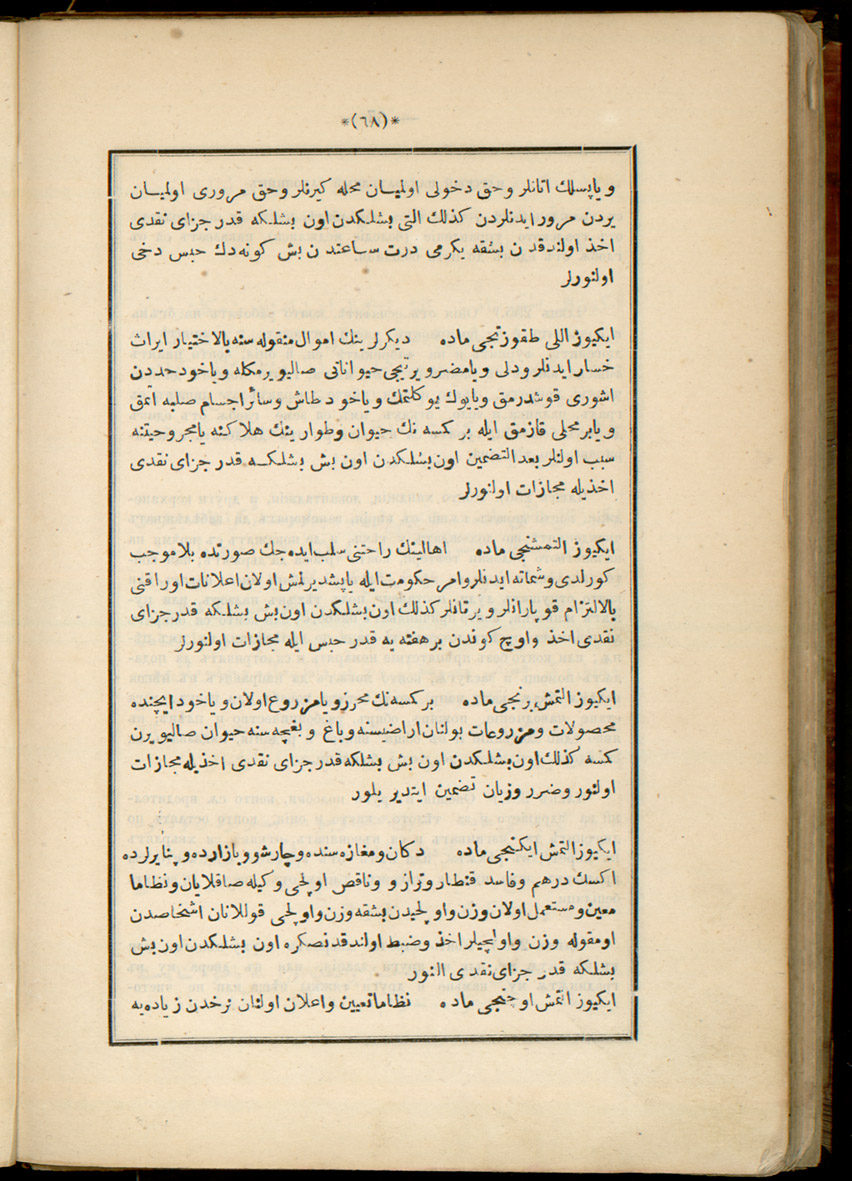 *(٦٨)*
و ياپسلك اتانلر وحق دخولى اولميان محله كيرنلر وحق مرورى اولميان
يردن مرور ايدنلردن كذلك التى بشلكدن اون بشلكه قدر جزاى نقدى
اخذ اولندقدن بشقه يكرمى درت ساعتدن بش كونه دك حبس دخى
اولنورلر
ايكيوز اللى طقوزنجى ماده ديكرلرينك اموال منقوله سنه بالاختيار ايراث
خسار ايدنلر و دلى ويا مضر و يرتيجى حيواناتى صاليويرمكله وياخود حددن
اشورى قوشدرمق ويا يوك يوكلتمك وياخود طاش وسائر اجسام صلبه اتمق
ويا بر محلى قازمق ايله بر كمسه نك حيوان وطوارينك هلاكنه يا مجروحيتنه
سبب اولنلر بعد التضمين اون بشلكدن اون بش بشلكه قدر جزاى نقدى
اخذيله مجازات اولنورلر
ايكيوز التمشنجى ماده اهالينك راحتنى سلب ايده جك صورتده بلا موجب
كورلدى وشماته ايدنلر و امر حكومت ايله ياپشديرلمش اولان اعلانات اوراقنى
بالالتزام قوپارانلر و يرتانلر كذلك اون بشلكدن اون بش بشلكه قدر جزاى
نقدى اخذ و اوچ كوندن بر هفته يه قدر حبس ايله مجازات اولنورلر
ايكيوز التمش برنجى ماده بر كمسه نك محرز و يا مزروع اولان و ياخود ايچنده
محصولات و مزروعات بولنان اراضيسنه و باغ و بغچه سنه حيوان صاليويرن
كمسه كذلك اون بشلكدن اون بش بشلكه قدر جزاى نقدى اخذيله مجازات
اولنور وضرر وزيان تضمين ايتديريلور
ايكيوز التمش ايكنجى ماده دكان و مغازه سنده و چارشو و بازارده و پنايرلرده
اكسك درهم وفاسد قنطار و ترازو وناقص اولچى و كيله صاقلايان و نظاما
معين و مستعمل اولان وزن و اولچيدن بشقه وزن و اولچى قوللانان اشخاصدن
اومقوله وزن و اولچيلر اخذ وضبط اولندقدنصكره اون بشلكدن اون بش
بشلكه قدر جزاى نقدى النور
ايكيوز التمش اوچنجى ماده نظاما تعيين و اعلان اولنان نرخدن زياده يه